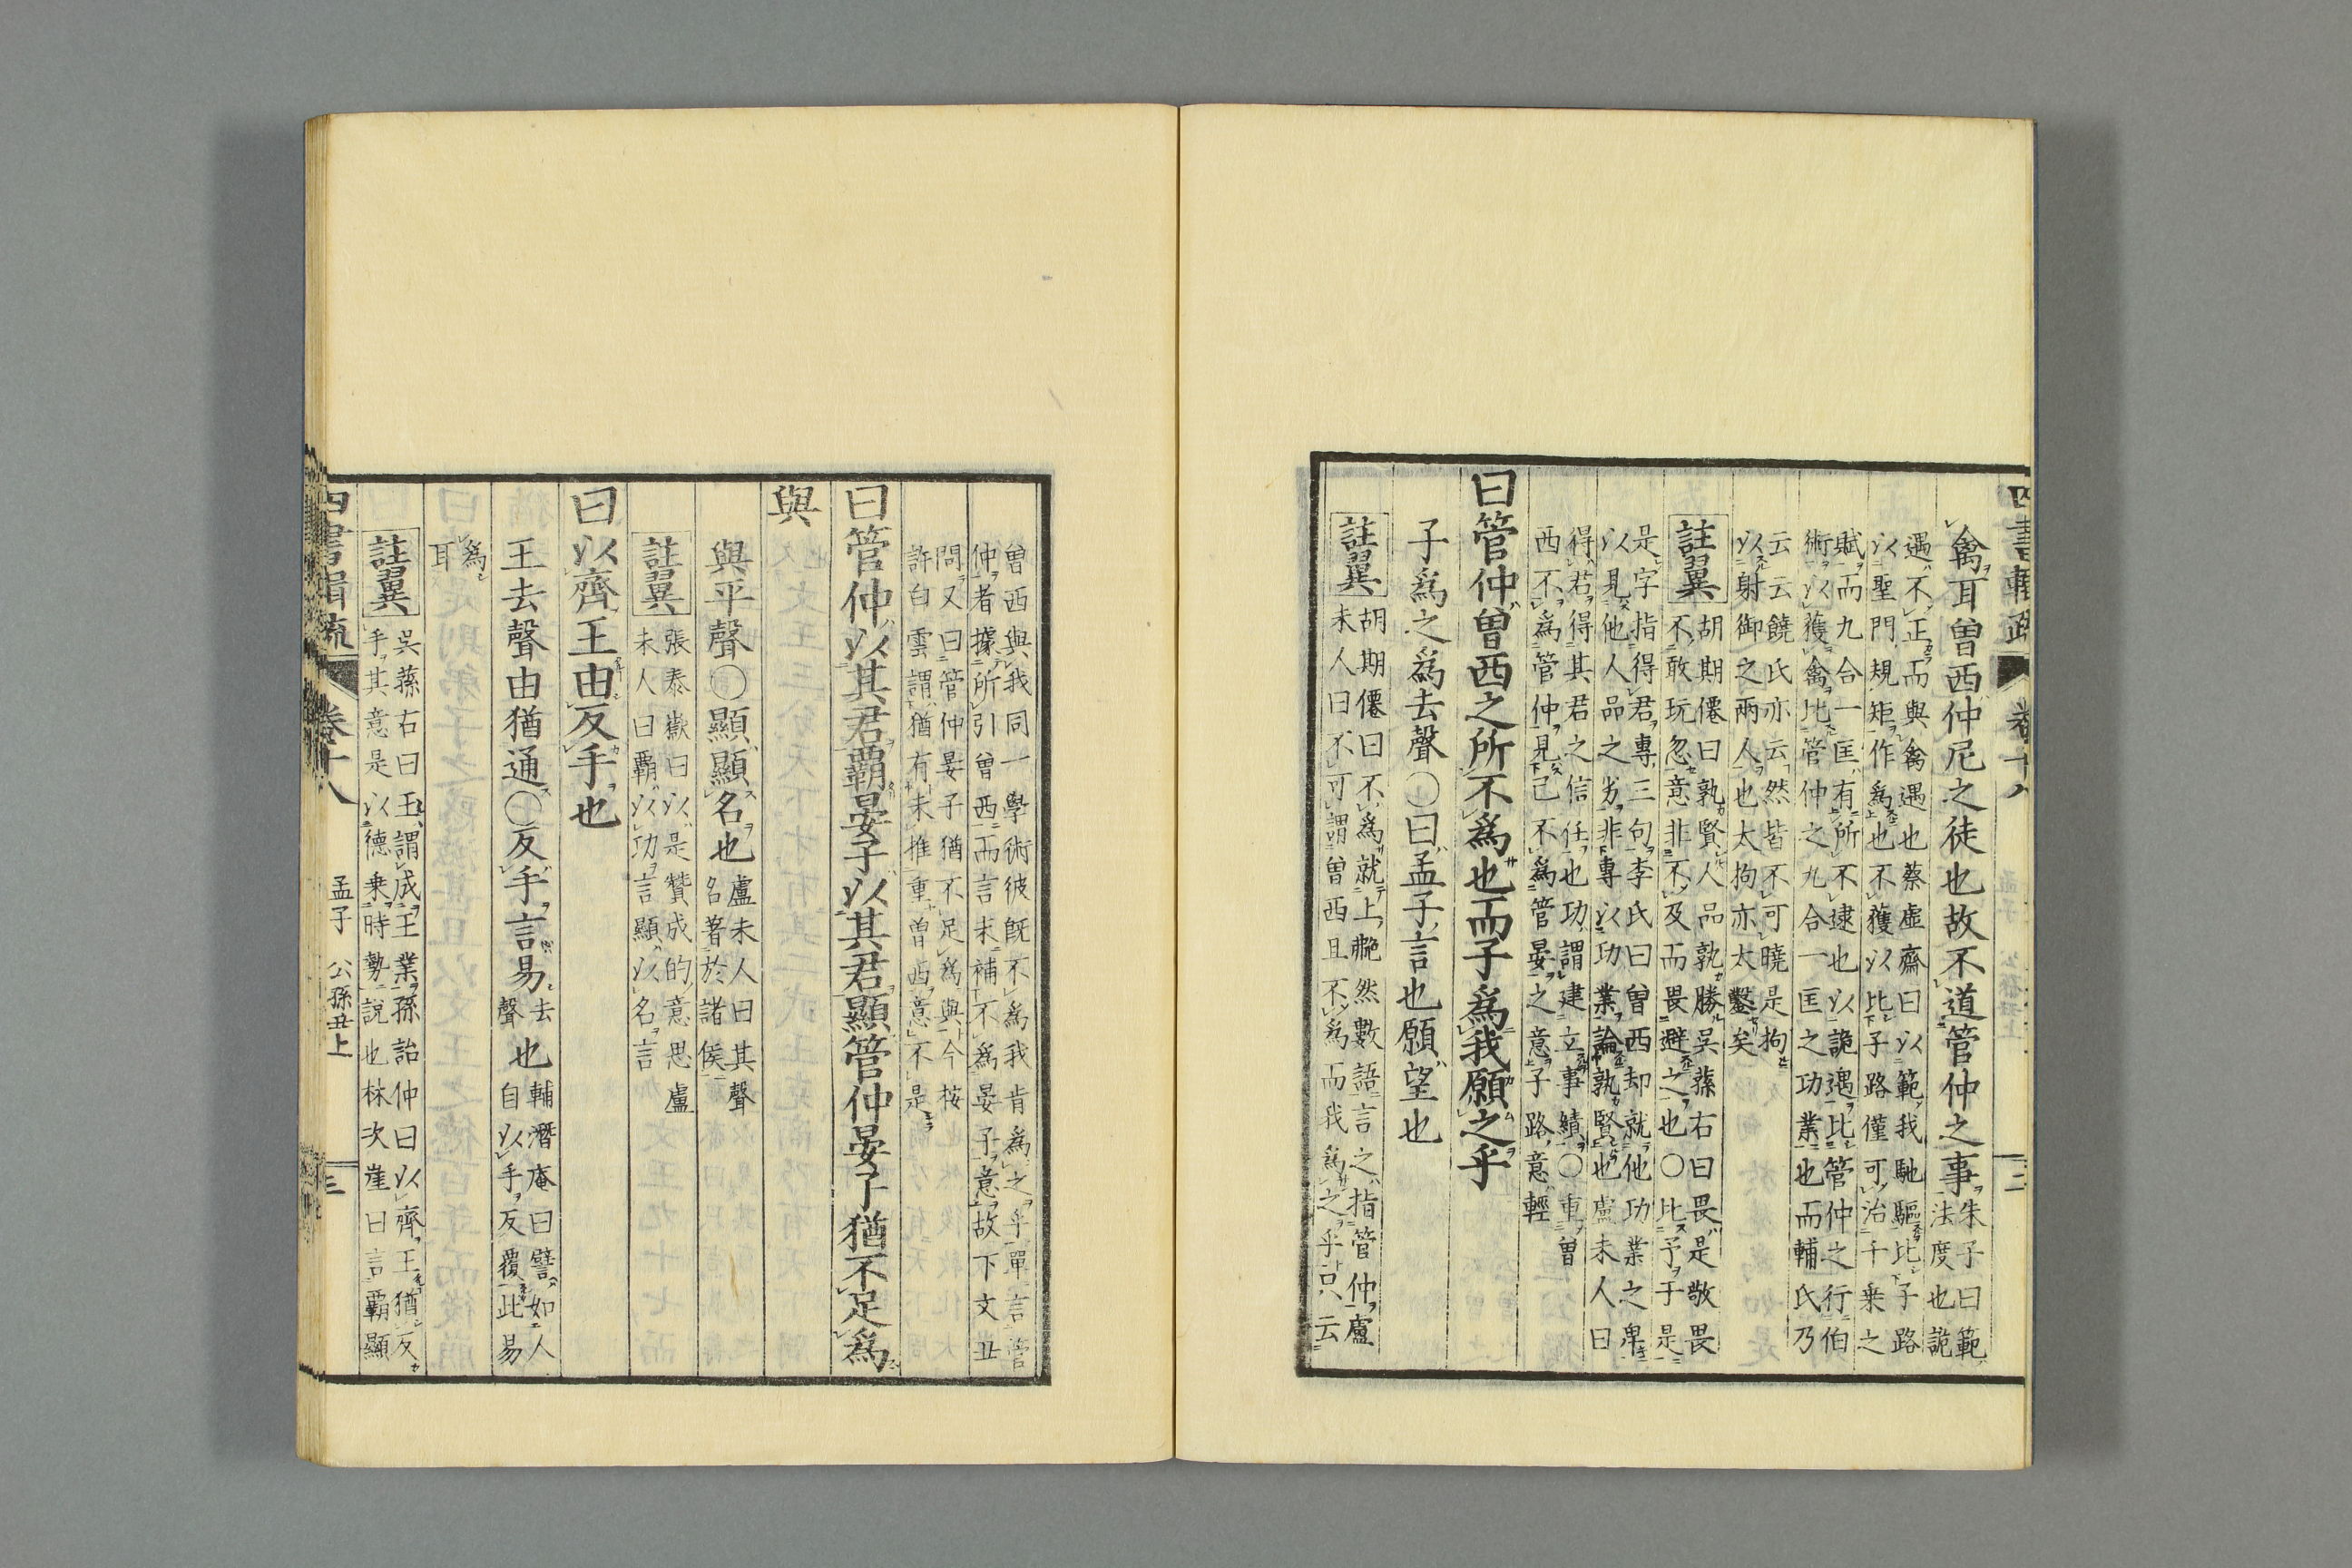 四書輯疏 卷十八 孟子 公孫丑上 二
禽耳曽西仲尼之徒也故不道管仲之事朱子曰範
法度也詭
遇不正而與禽遇也蔡虛齋曰以範我馳驅比子路
以聖門規矩作爲也不獲以比子路僅可治千乗之
賦而九合一匡有所不逮也以詭遇比管仲之行伯
術以獲禽比管仲之九合一匡之功業也而輔氏乃
云云饒氏亦云然皆不可曉是拘
以射御之兩人也太拘亦太鑿矣
註翼
胡期僊曰孰賢人品孰勝吳蓀右曰畏是敬畏
不敢玩忽意非不及而畏避之也〇比予于是
是字指得君專三句李氏曰曽西却就他功業之卑
以見他人品之劣非專以功業論孰賢也盧未人曰
得君得其君之信任也功謂建立事績〇重曽
西不爲管仲見己不爲管晏之意子路意輕
曰管仲曽西之所不爲也而子爲我願之乎
子爲之爲去聲〇曰孟子言也願望也
註翼
胡期僊曰不爲就上艴然數語言之指管仲盧
未人曰不可謂曽西且不爲而我爲之乎只云
曽西與我同一學術彼既不爲我肯爲之乎單言管
仲者據所引曽西而言未補不爲晏子意故下文丑
問又曰管仲晏子猶不足爲與今按
許白雲謂猶有未推重曽西意不是
曰管仲以其君覇晏子以其君顯管仲晏子猶不足爲
與
與平聲〇顯顯名也盧未人曰其聲
名著於諸侯
註翼
張泰嶽曰以是贊成的意思盧
未人曰覇以功言顯以名言
曰以齊王由反手也
王去聲由猶通〇反手言易去
聲也輔潛庵曰譬如人
自以手反覆此易
爲
耳
註翼
吳蓀右曰王謂成王業孫詒仲曰以齊王猶反
手其意是以德乗時勢說也林次崖曰言覇顯
四書輯疏 卷十八 孟子 公孫丑上 三